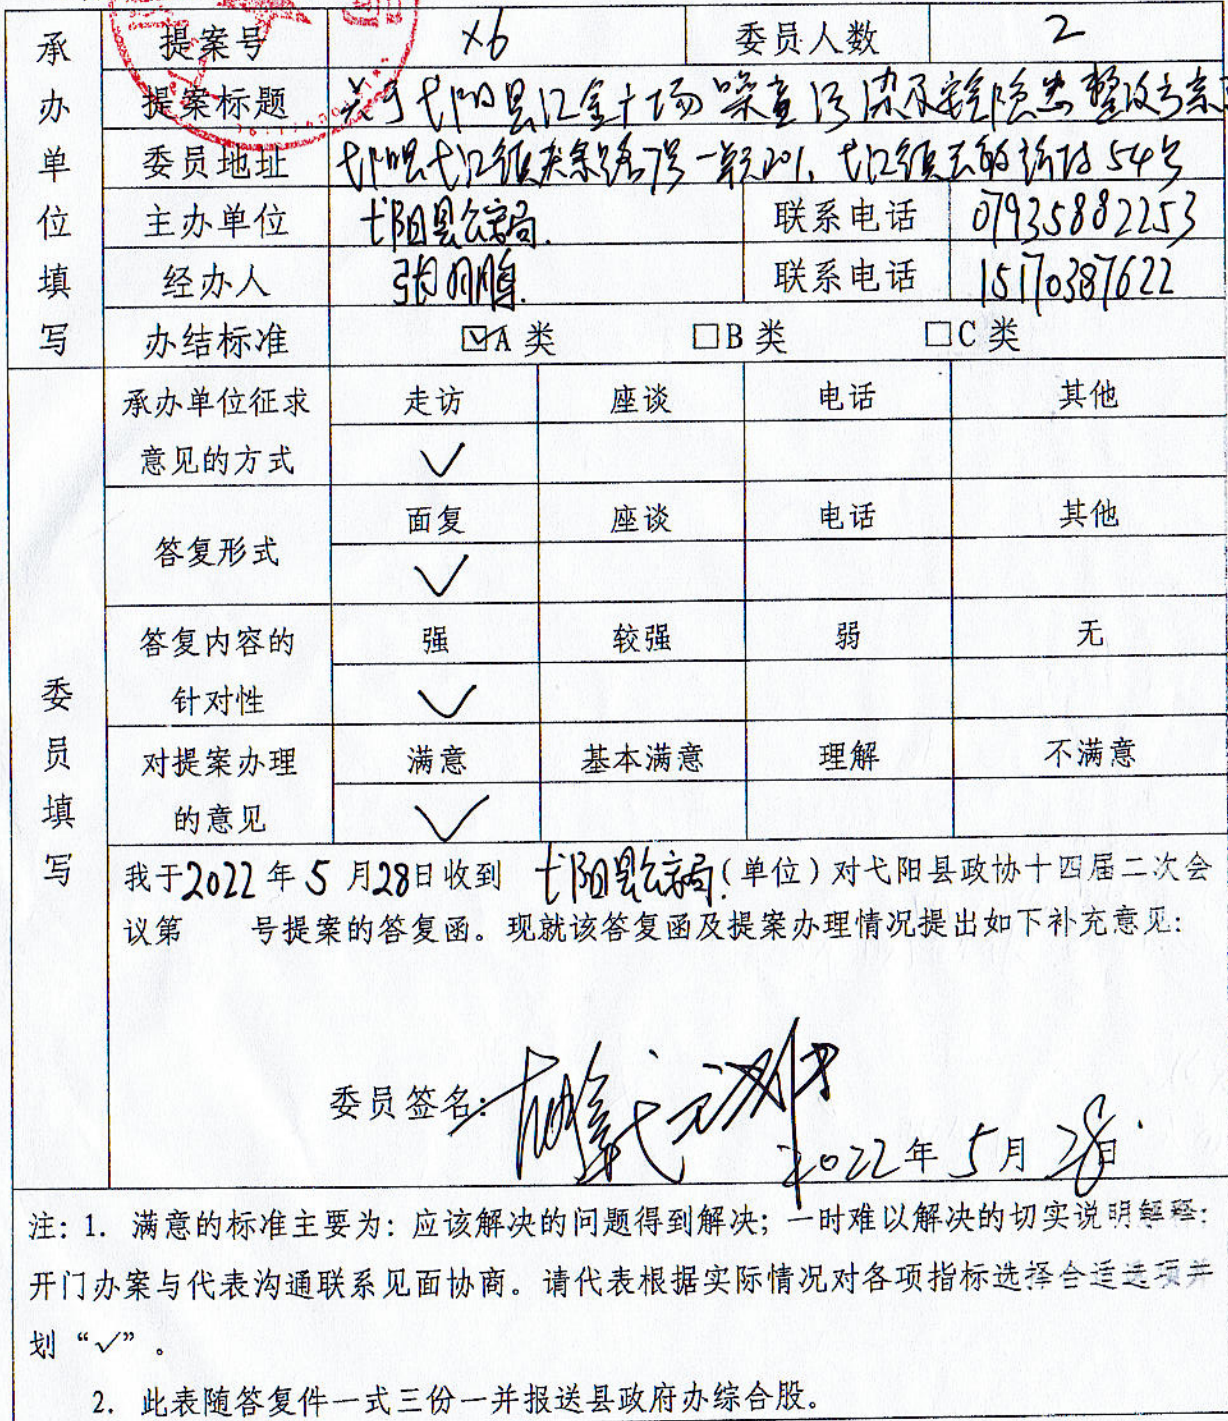 承办单位填写
提案号 X6 委员人数 2
提案标题 关于弋阳县江金广场噪音污染及安全隐患整改方案
委员地址 弋阳县弋江镇 路 号一单元201、弋江镇 54号
主办单位 弋阳县公安局. 联系电话 07935882253
经办人 张 鹏. 联系电话 15170387622
办结标准 ☑A 类 □B 类 □C 类
委员填写
承办单位征求 走访 座谈 电话 其他
意见的方式 ✓
答复形式 面复 座谈 电话 其他
✓
答复内容的 强 较强 弱 无
针对性 ✓
对提案办理 满意 基本满意 理解 不满意
的意见 ✓
我于2022年5月28日收到 弋阳县公安局.(单位)对弋阳县政协十四届二次会
议第 号提案的答复函。现就该答复函及提案办理情况提出如下补充意见:
委员签名:
2022年5月28日
注: 1. 满意的标准主要为: 应该解决的问题得到解决; 一时难以解决的切实说明解释;
开门办案与代表沟通联系见面协商。请代表根据实际情况对各项指标选择合适选项并
划“✓”。
2. 此表随答复件一式三份一并报送县政府办综合股。